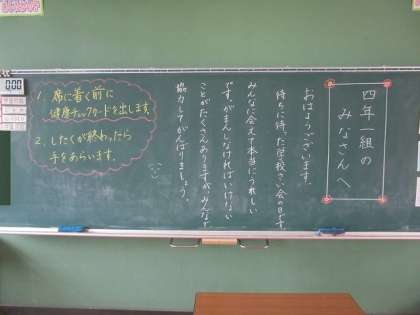 四年一組の
みなさんへ
おはようございます。
待ちに待った学校さい会の日です。
みんなに会えて本当にうれしい
です。がまんしなければいけない
ことがたくさんありますが、みんなで
協力してがんばりましょう。
1. 席に着く前に
健康チェックカードを出します。
2. したくが終わったら
手をあらいます。
0:00